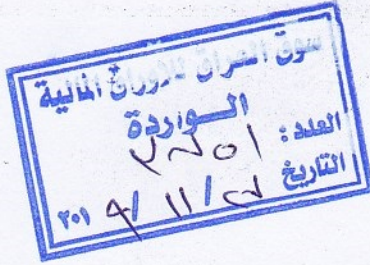 سوق العراق للاوراق المالية
الـــواردة
العدد :
التاريخ / ١١ / ٢٠١٩